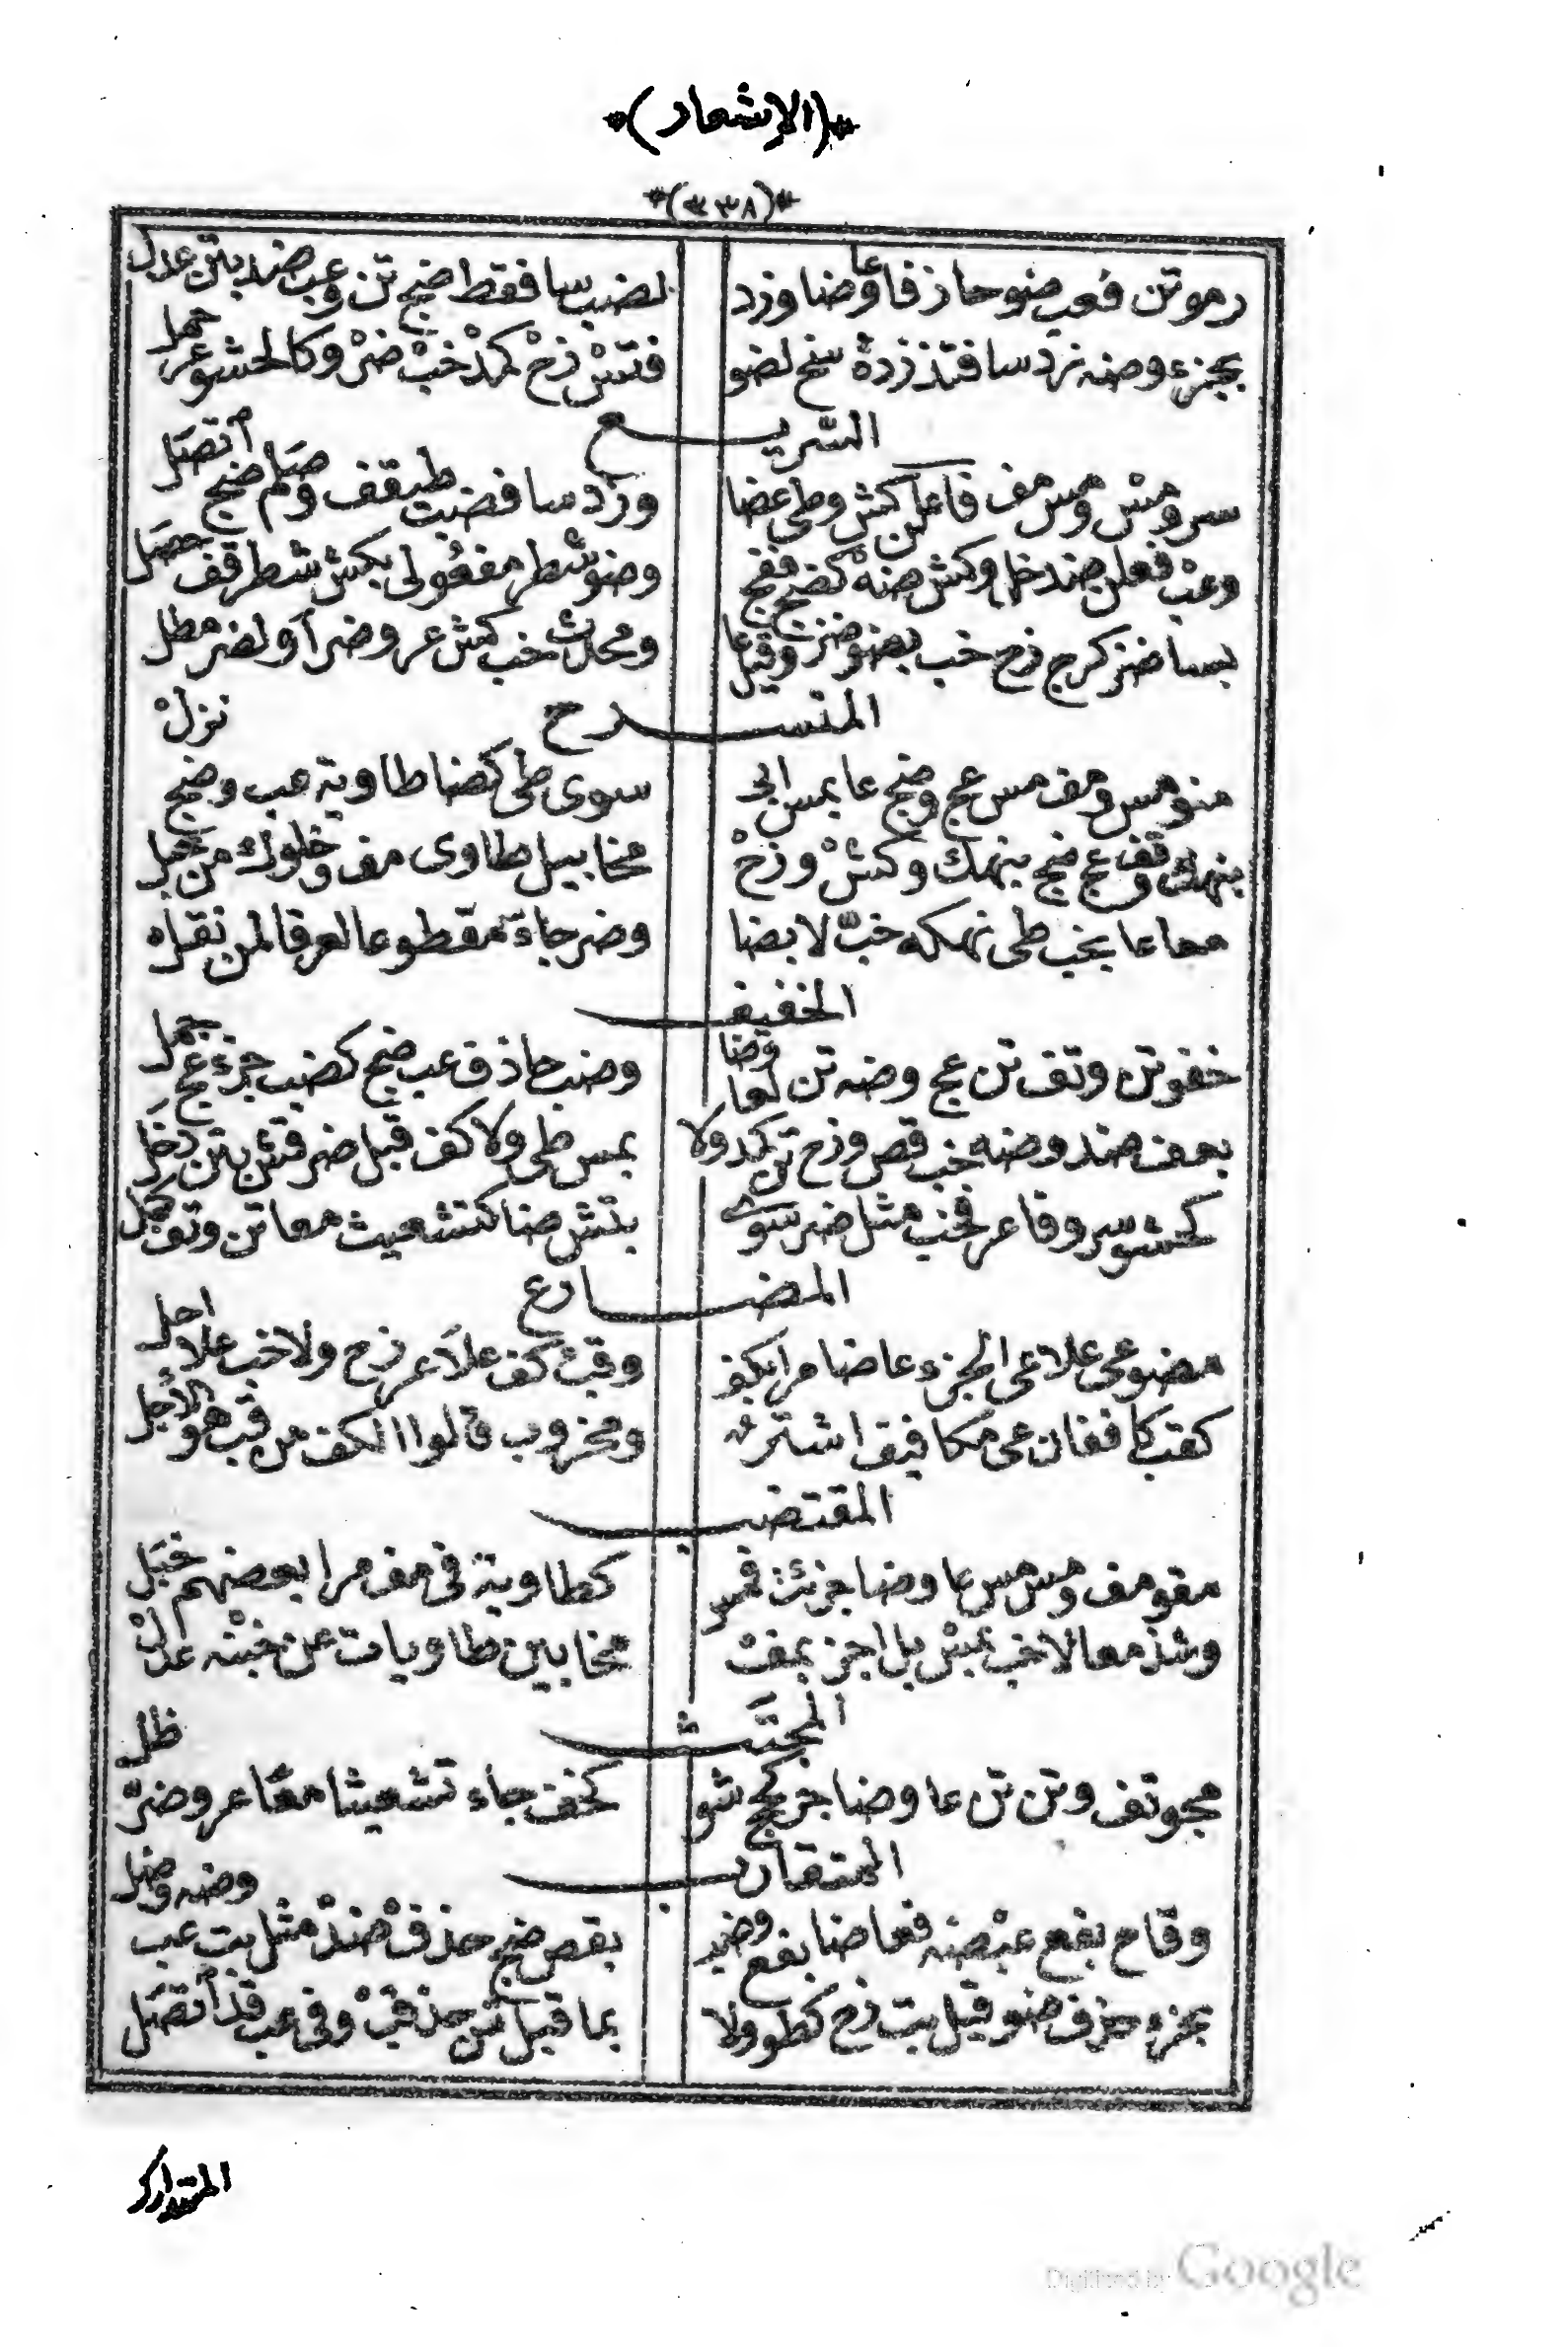 *(الإشعار)*
*(٣٣٨)*
رموتن فعب ضوحاذ فاعا وضا وزد لضب سا فقط ضج تن وعب ضد بتن عدل
بجزء وضه نزد سا فتذ زده سخ لضو فتش زح كمد خب ضر وكالحشو عر حمل
السريع
سر ومس ومس مف فاعلن كش وطي عضا وزد سا فضب طيقف وصلم ضج أتصل
وعب فعلن ضد خل وكش ضه كضج فقج وضو شطر مفعولى بكش شطر قف حصل
بسا ضز كرج زح خب بضو ضز وقيل عا ومحدث خب كش عر وضر أو لضر مطل
المنسرح
نزل
منو مس ومف مس عج وضج عا بمس ابى سوى طي كضا طاوية عب وضج
بنهك وقف عج ضج بنهك وكش وزح مخابيل طاوى مف وخلوك من خبل
معا عا بخب طي نهكه خب لا بضا وضر جاء مقطوعا لعر فالمن نقراه
الخفيف
خفو تن وتف تن عج وضه تن لعا وضا وضب حاذف عب ضج كضب جزء عج جمل
بعف ضد وضه خب قص وزح تن كمد ولا بمس طي ولا كف قبل ضر فتش بتن دخل
كحشو سر وفا عر فخب مثل ضر سوى بتش ضا كتشعيث معا تن وتف كمل
المضارع
مضو عى علا عى الجزء عا ضا مرا بكف وقب كف علا عر زح ولا خب علا احل
كقب كا ففان عى مكا فيقا شتر ومخروب قالوا الكف من قب هو الاجل
المقتضب
مقو مف ومس مس عا وضا جزئت فمس كطاوية فى مف مرا بعضهم خبل
وشذ معا لا خب بمس بل اجز بمف مخابين طاويات عن خبنه عدل
المجتث
ظل
مجو تف وتن تن عا وضا جز كج شو كخف جاء تشعيثا معا عر وضر
المتقارب
وضه وضل
وقاح بفع عب ضه فعا ضا بفع وضد بقص ضج حذف ضد مثل بت عب
بجزء حذف ضو قيل بت زح كطو ولا بما قبل تن حذ قب وفى عب قذ أتصل
المتدارك
Digitized by Google